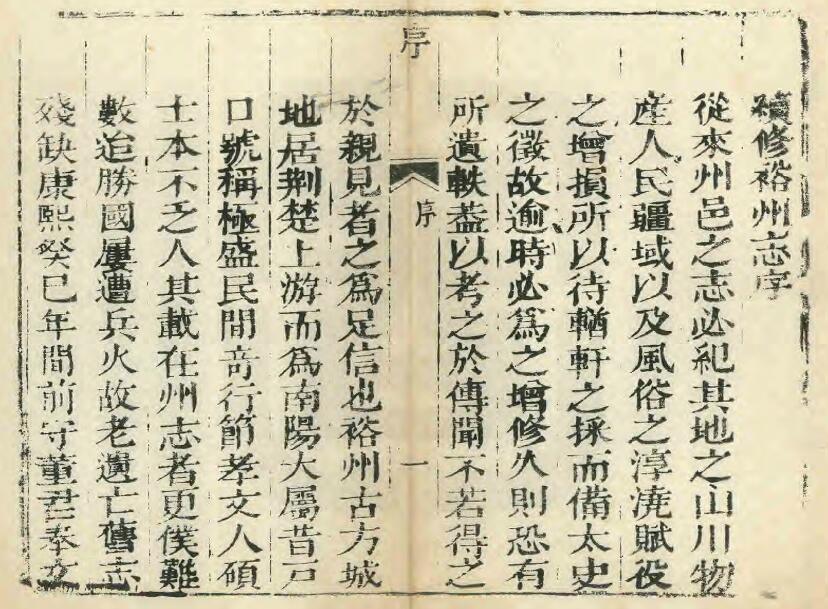 續修裕州志序
從來州邑之志必紀其地之山川物
産人民疆域以及風俗之淳澆賦役
之增損所以待輶軒之採而備太史
之徵故逾時必為之增修久則恐有
所遺軼葢以考之於傳聞不若得之
序
序
一
於親見者之為足信也裕州古方城
地居荆楚上游而為南陽大屬昔戸
口號稱極盛民間竒行節孝文人碩
士本不乏人其載在州志者更僕難
數迨勝國屢遭兵火故老遺亡舊志
殘缺康熙癸巳年間前守董君奉文